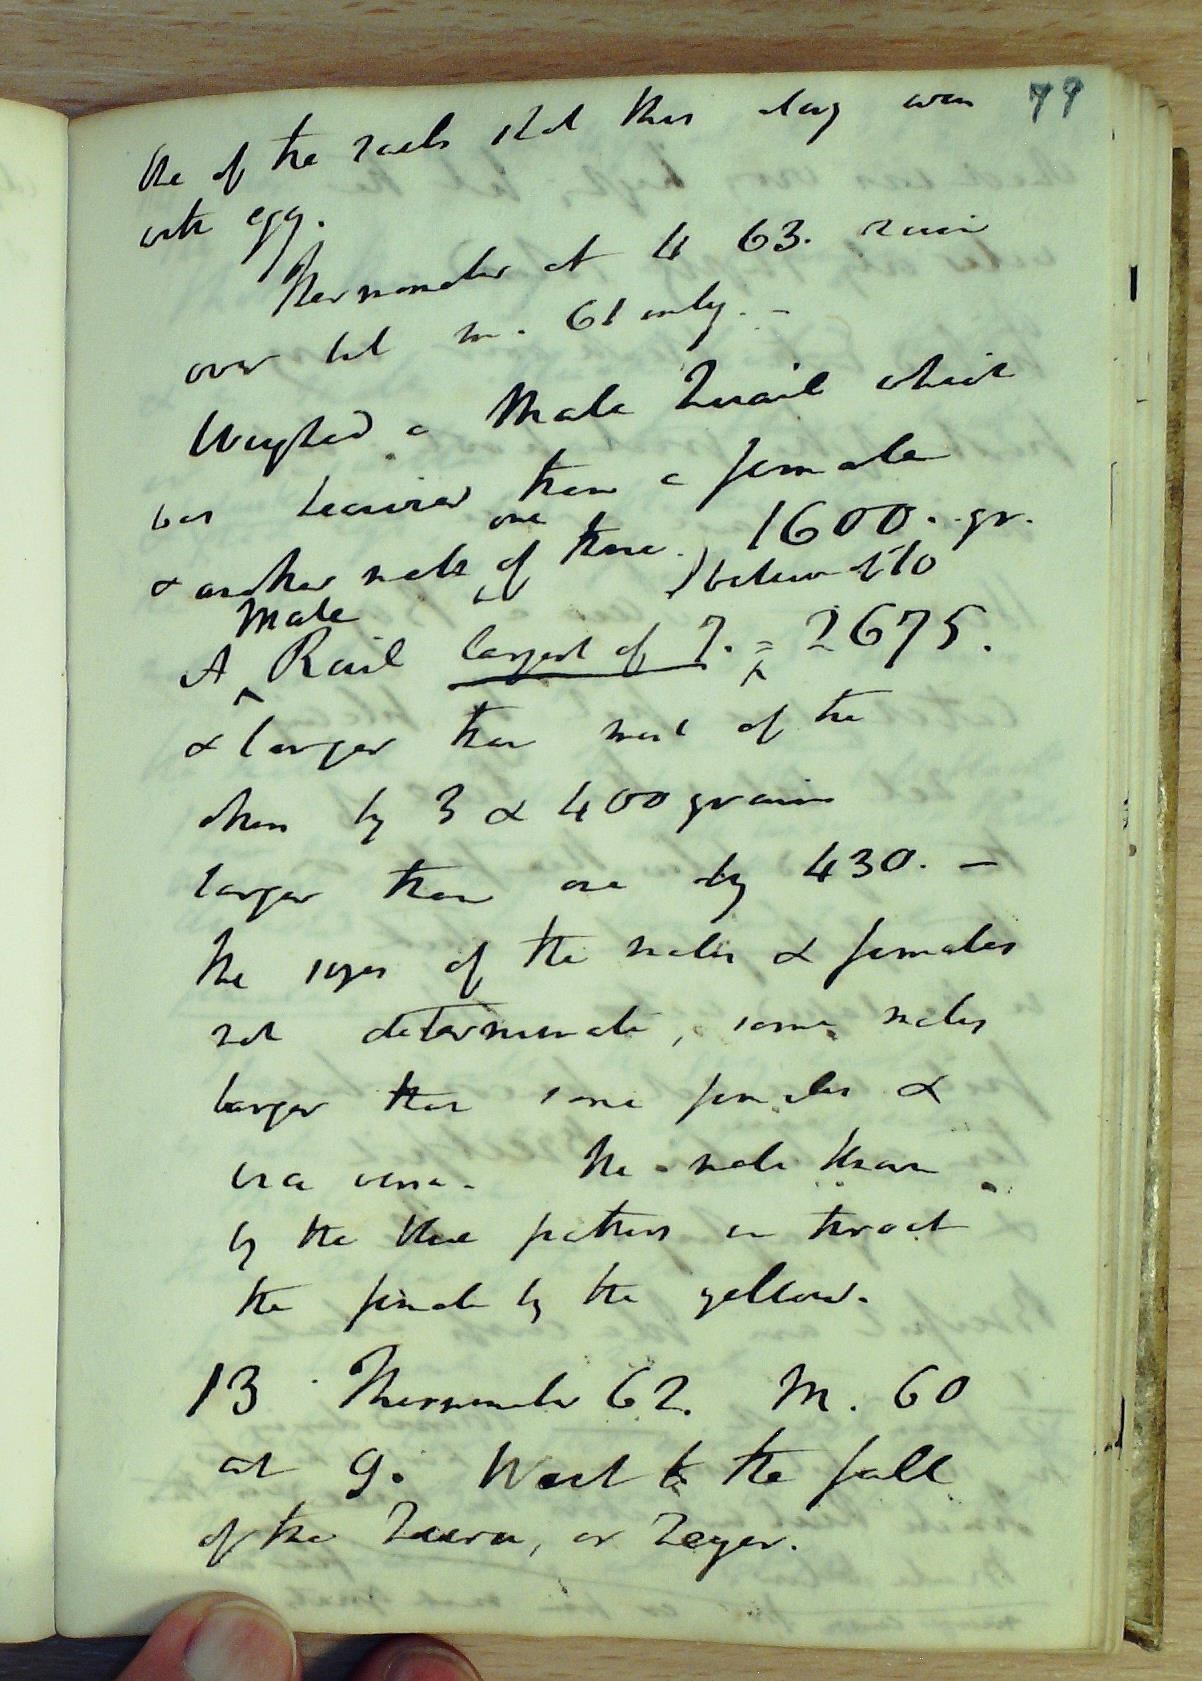 79
the of the rails shot this day were
with egg.
Thermometer at 4 63. rain
over till m. 61 only. -
Weighed a Male Quail which
was heavier than a female
& another male one of three. 1600. gr.
below 1510
A Male Rail largest of 7. = 2675.
& larger than most of the
others by 3 & 400 grains
larger than one by 430. -
The sizes of the males & females
not determinate, some males
larger than some females &
vice versa. The male known
by the blue feathers in throat
the female by the yellow.
13 Thermometer 62. M. 60
at 9. Went to the fall
of the Zaera, or Zeyer.